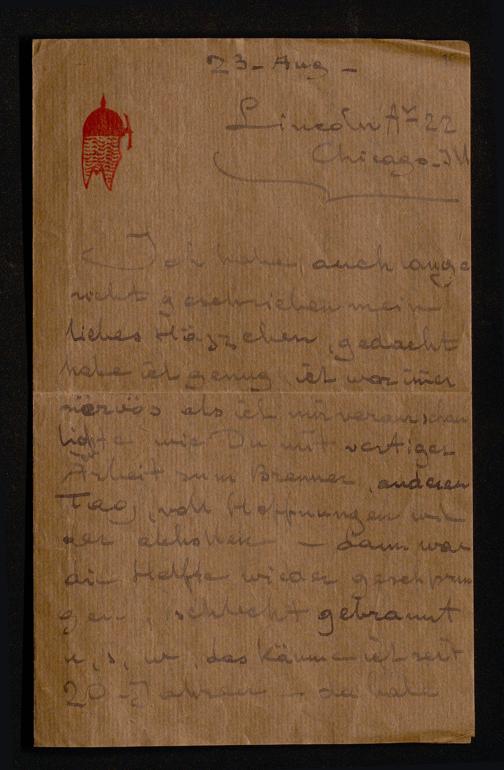 23 - Aug -
Lincoln Av - 22
Chicago - Ill
Ich habe auch lange
nicht geschrieben mein
liebes Häzzchen, gedacht
habe ich genug ich war immer
nervös als ich mir veranschau
lichte wie Du mit vertiger
Arbeit zum Brenner, anderen
Tag, voll Hoffnungen
der abholten - dann war
die Helfte wieder gesprun
gen, schlecht gebrannt
u, s, w, das känne ich seit
20 Jahren - da habe